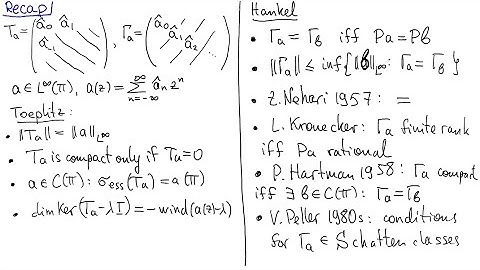 Recap
T_a = ( â_0 â_1 â_-1 ) , Γ_a = ( â_0 â_1 â_2 ... )
a ∈ L^∞(𝕋), a(z) = Σ_{n=-∞}^{∞} â_n z^n
Toeplitz:
• ‖T_a‖ = ‖a‖_{L^∞}
• T_a is compact only if T_a = 0
• a ∈ C(𝕋): σ_ess(T_a) = a(𝕋)
• dim ker(T_a - λI) = - wind(a(z) - λ)
Hankel
• Γ_a = Γ_b iff Pa = Pb
• ‖Γ_a‖ ≤ inf{‖b‖_{L^∞}: Γ_a = Γ_b}
• Z. Nehari 1957: =
• L. Kronecker: Γ_a finite rank
iff Pa rational
• P. Hartman 1958: Γ_a compact
iff ∃ b ∈ C(𝕋): Γ_a = Γ_b
• V. Peller 1980s: conditions
for Γ_a ∈ Schatten classes